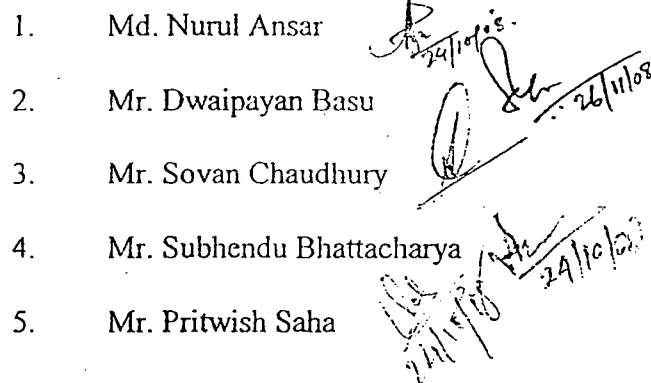 1. Md. Nurul Ansar 24/10/08.
2. Mr. Dwaipayan Basu 26/11/08
3. Mr. Sovan Chaudhury
4. Mr. Subhendu Bhattacharya 24/10/08
5. Mr. Pritwish Saha